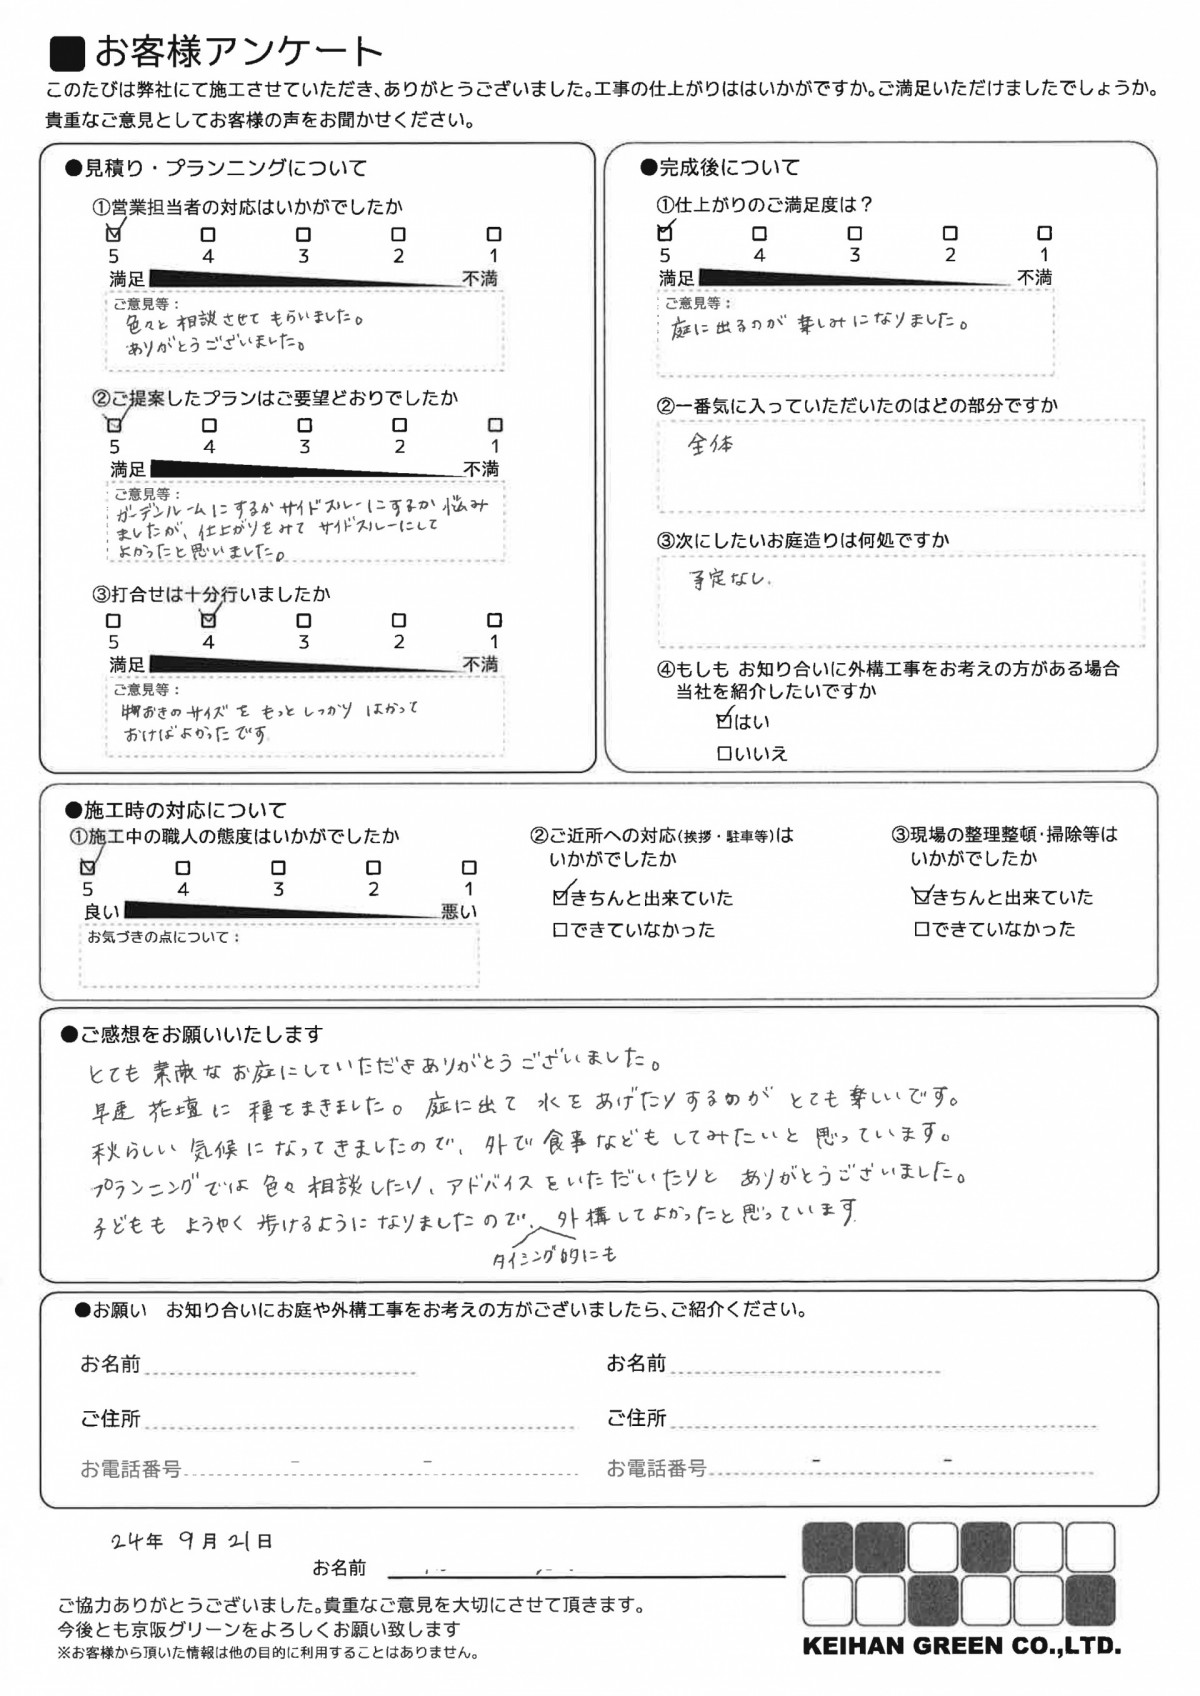 ■お客様アンケート
このたびは弊社にて施工させていただき、ありがとうございました。工事の仕上がりははいかがですか。ご満足いただけましたでしょうか。
貴重なご意見としてお客様の声をお聞かせください。
●見積り・プランニングについて
①営業担当者の対応はいかがでしたか
☑ □ □ □ □
5 4 3 2 1
満足 不満
ご意見等：
色々と相談させてもらいました。
ありがとうございました。
②ご提案したプランはご要望どおりでしたか
☑ □ □ □ □
5 4 3 2 1
満足 不満
ご意見等：
ガーデンルームにするかサイドスルーにするか悩み
ましたが、仕上がりをみてサイドスルーにして
よかったと思いました。
③打合せは十分行いましたか
□ ☑ □ □ □
5 4 3 2 1
満足 不満
ご意見等：
物おきのサイズをもっとしっかりはかって
おけばよかったです
●完成後について
①仕上がりのご満足度は？
☑ □ □ □ □
5 4 3 2 1
満足 不満
ご意見等：
庭に出るのが楽しみになりました。
②一番気に入っていただいたのはどの部分ですか
全体
③次にしたいお庭造りは何処ですか
予定なし.
④もしも お知り合いに外構工事をお考えの方がある場合
当社を紹介したいですか
☑はい
□いいえ
●施工時の対応について
①施工中の職人の態度はいかがでしたか
☑ □ □ □ □
5 4 3 2 1
良い 悪い
お気づきの点について：
②ご近所への対応(挨拶・駐車等)は
いかがでしたか
☑きちんと出来ていた
□できていなかった
③現場の整理整頓・掃除等は
いかがでしたか
☑きちんと出来ていた
□できていなかった
●ご感想をお願いいたします
とても素敵なお庭にしていただきありがとうございました。
早速花壇に種をまきました。庭に出て水をあげたりするのがとても楽しいです。
秋らしい気候になってきましたので、外で食事などもしてみたいと思っています。
プランニングでは色々相談したり、アドバイスをいただいたりとありがとうございました。
子どももようやく歩けるようになりましたので、外構してよかったと思っています
タイミング的にも
●お願い お知り合いにお庭や外構工事をお考えの方がございましたら、ご紹介ください。
お名前 お名前
ご住所 ご住所
お電話番号 - - お電話番号 - -
24年 9月21日
お名前
ご協力ありがとうございました。貴重なご意見を大切にさせて頂きます。
今後とも京阪グリーンをよろしくお願い致します
※お客様から頂いた情報は他の目的に利用することはありません。
KEIHAN GREEN CO.,LTD.